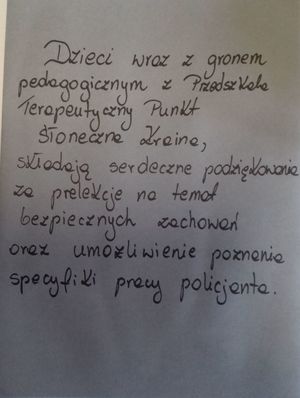 Dzieci wraz z gronem
pedagogicznym z Przedszkola
Terapeutyczny Punkt
Słoneczna Kraina,
składają serdeczne podziękowania
za prelekcje na temat
bezpiecznych zachowań
oraz umożliwienie poznania
specyfiki pracy policjanta.